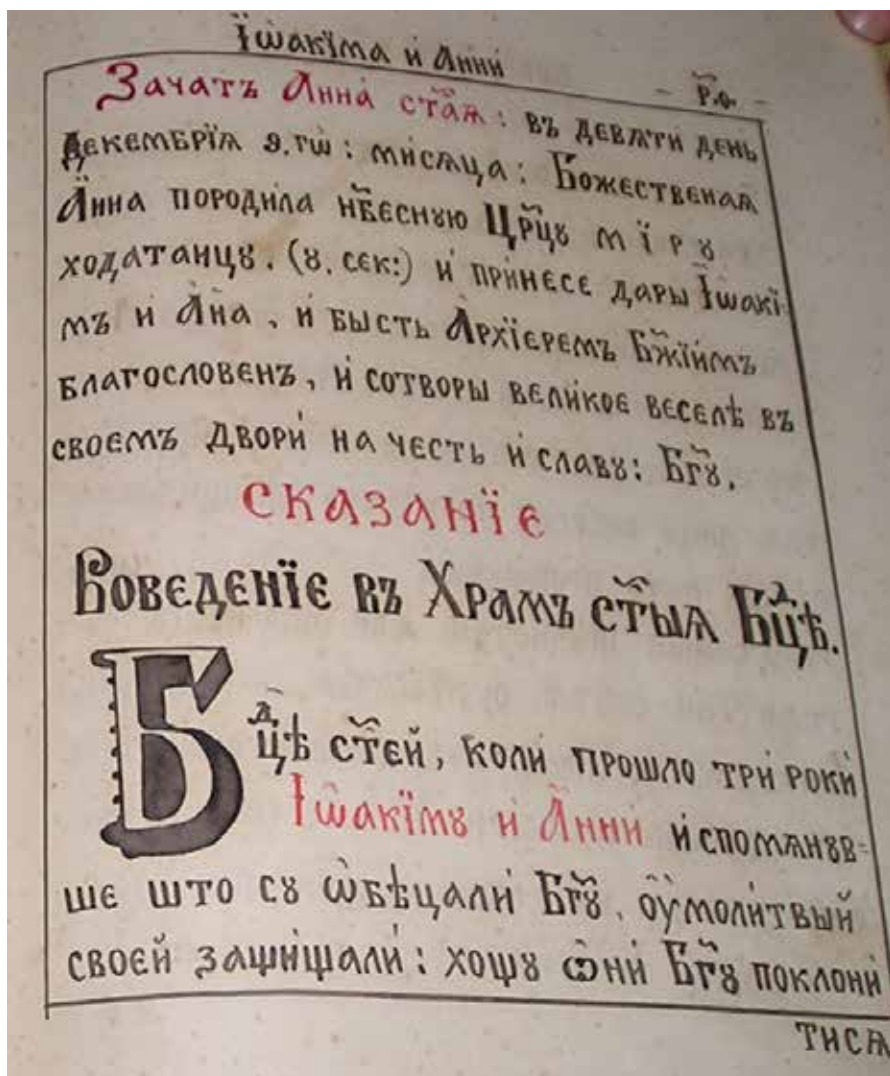 Їѡакїма и́ А́нни
р҃.ѳ.
Зачатъ А́нна̀ ста҃ѧ : въ девѧти день
Декемврїѧ ѳ.гѡ : ми́сѧца : Божественаѧ
А́нна породи́ла нб҃еснꙋю Цр҃цꙋ м ї р ꙋ
ходатаицꙋ. (ꙋ. сек:) и́ при́несе дары Їѡакі-
мъ и́ А́на , и́ бысть А́рхїерем̾ъ Бж҃їи́мъ
благословенъ , и́ сотворы вели́кое веселѣ въ
своемъ двори́ на честь и́ славꙋ : Бг҃ꙋ .
Сказанїе
Воведенїе въ Храмъ ст҃ыѧ Бцⷣѣ.
Бцⷣѣ ст҃ей , коли́ прошло три́ роки́
Їѡакїмꙋ и́ А́нни́ и́спомѧнꙋв=
ше што сꙋ ѡ҆бѣцали́ Бг҃ꙋ . оу҆моли́твый
своей защи́щали́ : хощꙋ ѻни́ Бг҃ꙋ поклони́
тисѧ